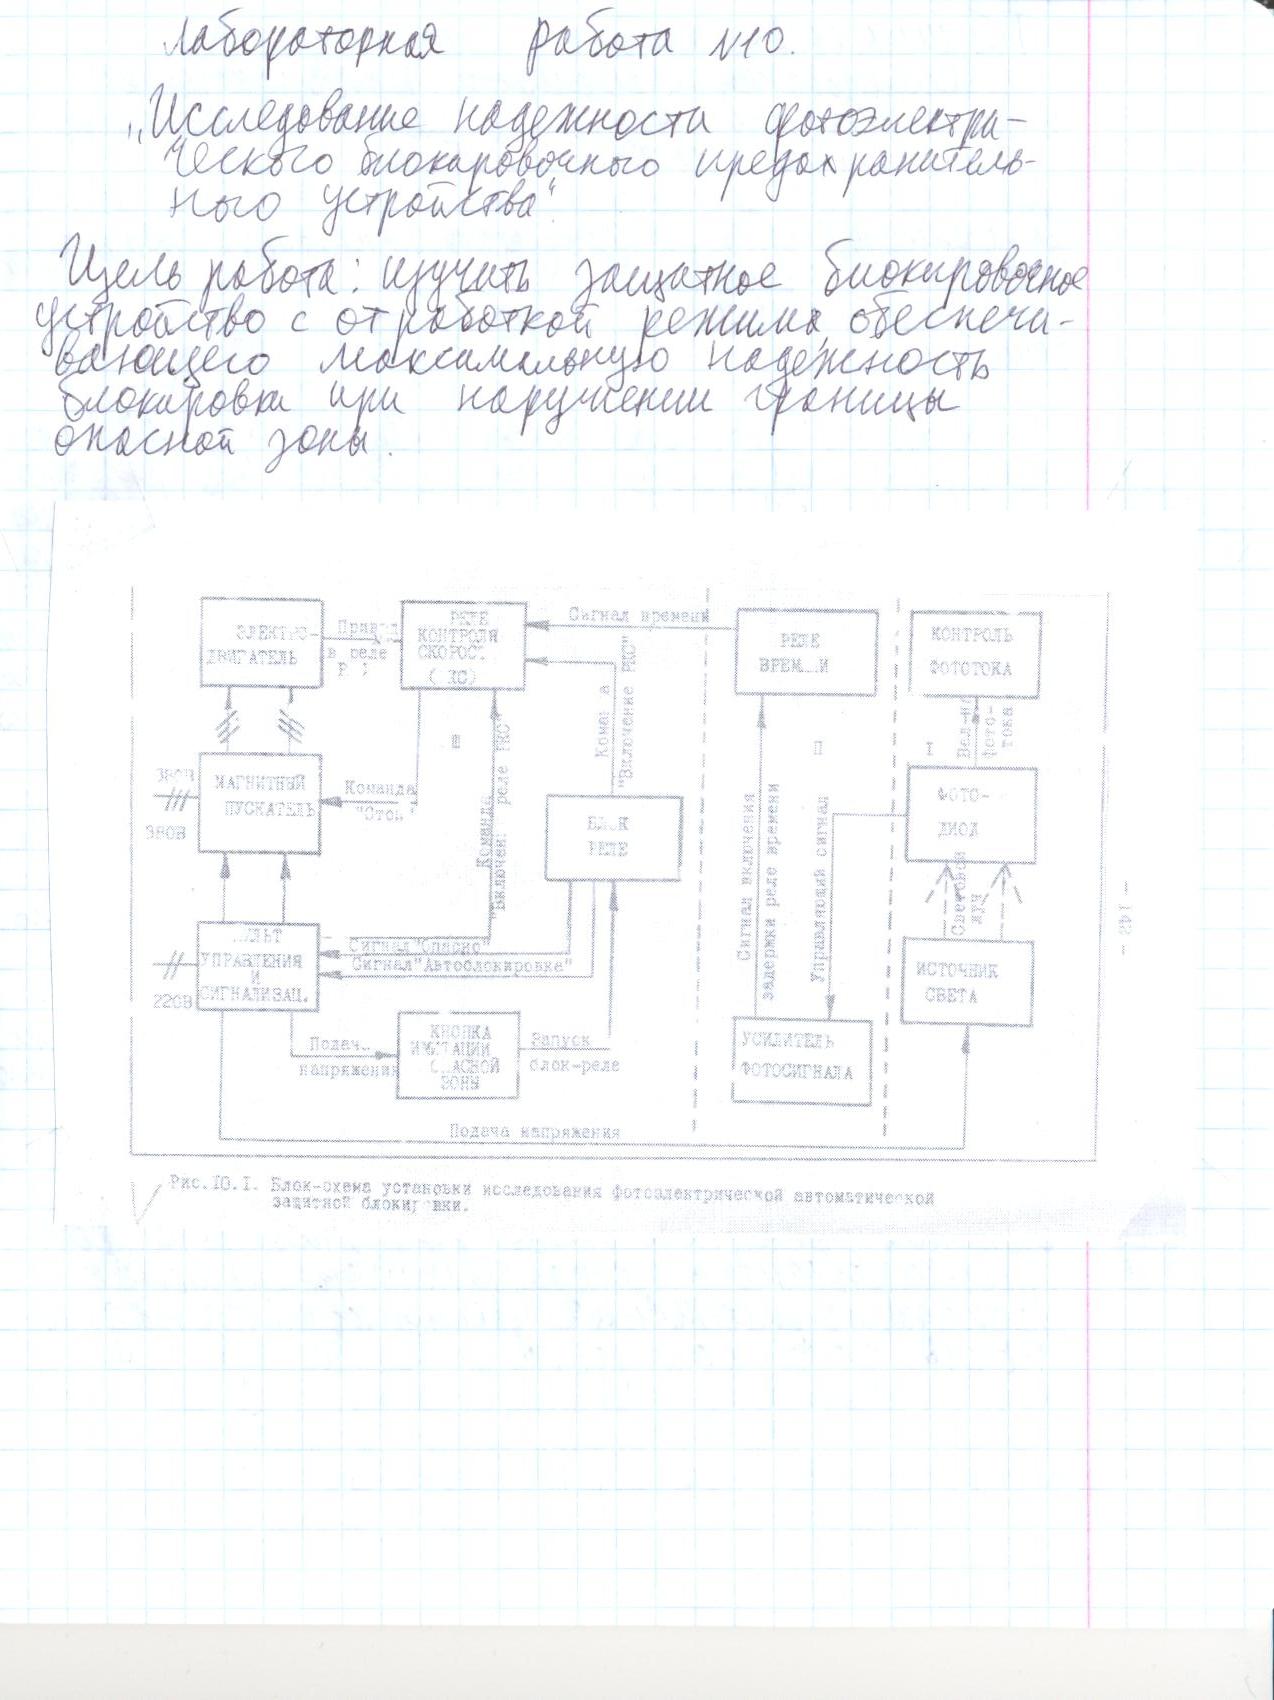 Лабораторная работа №10.
„Исследование надежности фотоэлектри-
ческого блокировочного предохранитель-
ного устройства“.
Цель работа: изучить защитное блокировочное
устройство с отработкой режима, обеспечи-
вающего максимальную надежность
блокировки при нарушении границы
опасной зоны.
ЭЛЕКТРО-
ДВИГАТЕЛЬ
в реле
РЕЛЕ
КОНТРОЛЯ
СКОРОС
Сигнал времени
РЕЛЕ
КОНТРОЛЬ
ФОТОТОКА
"Включение РКС"
фото-
тока
III
II
I
380В
380В
МАГНИТНЫЙ
ПУСКАТЕЛЬ
Команда
Команда
реле РКС"
БЛОК
РЕЛЕ
Сигнал включения
задержки реле времени
Управляющий сигнал
ФОТО-
ДИОД
Световой
луч
УПРАВЛЕНИЯ
И
СИГНАЛИЗАЦ.
220В
Сигнал "Опасно"
Сигнал "Автоблокировка"
ИСТОЧНИК
СВЕТА
- 149 -
напряжения
КНОПКА
ЗОНЫ
Запуск
блок-реле
УСИЛИТЕЛЬ
ФОТОСИГНАЛА
Подача напряжения
Рис.10.1. Блок-схема установки исследования фотоэлектрической автоматической
защитной